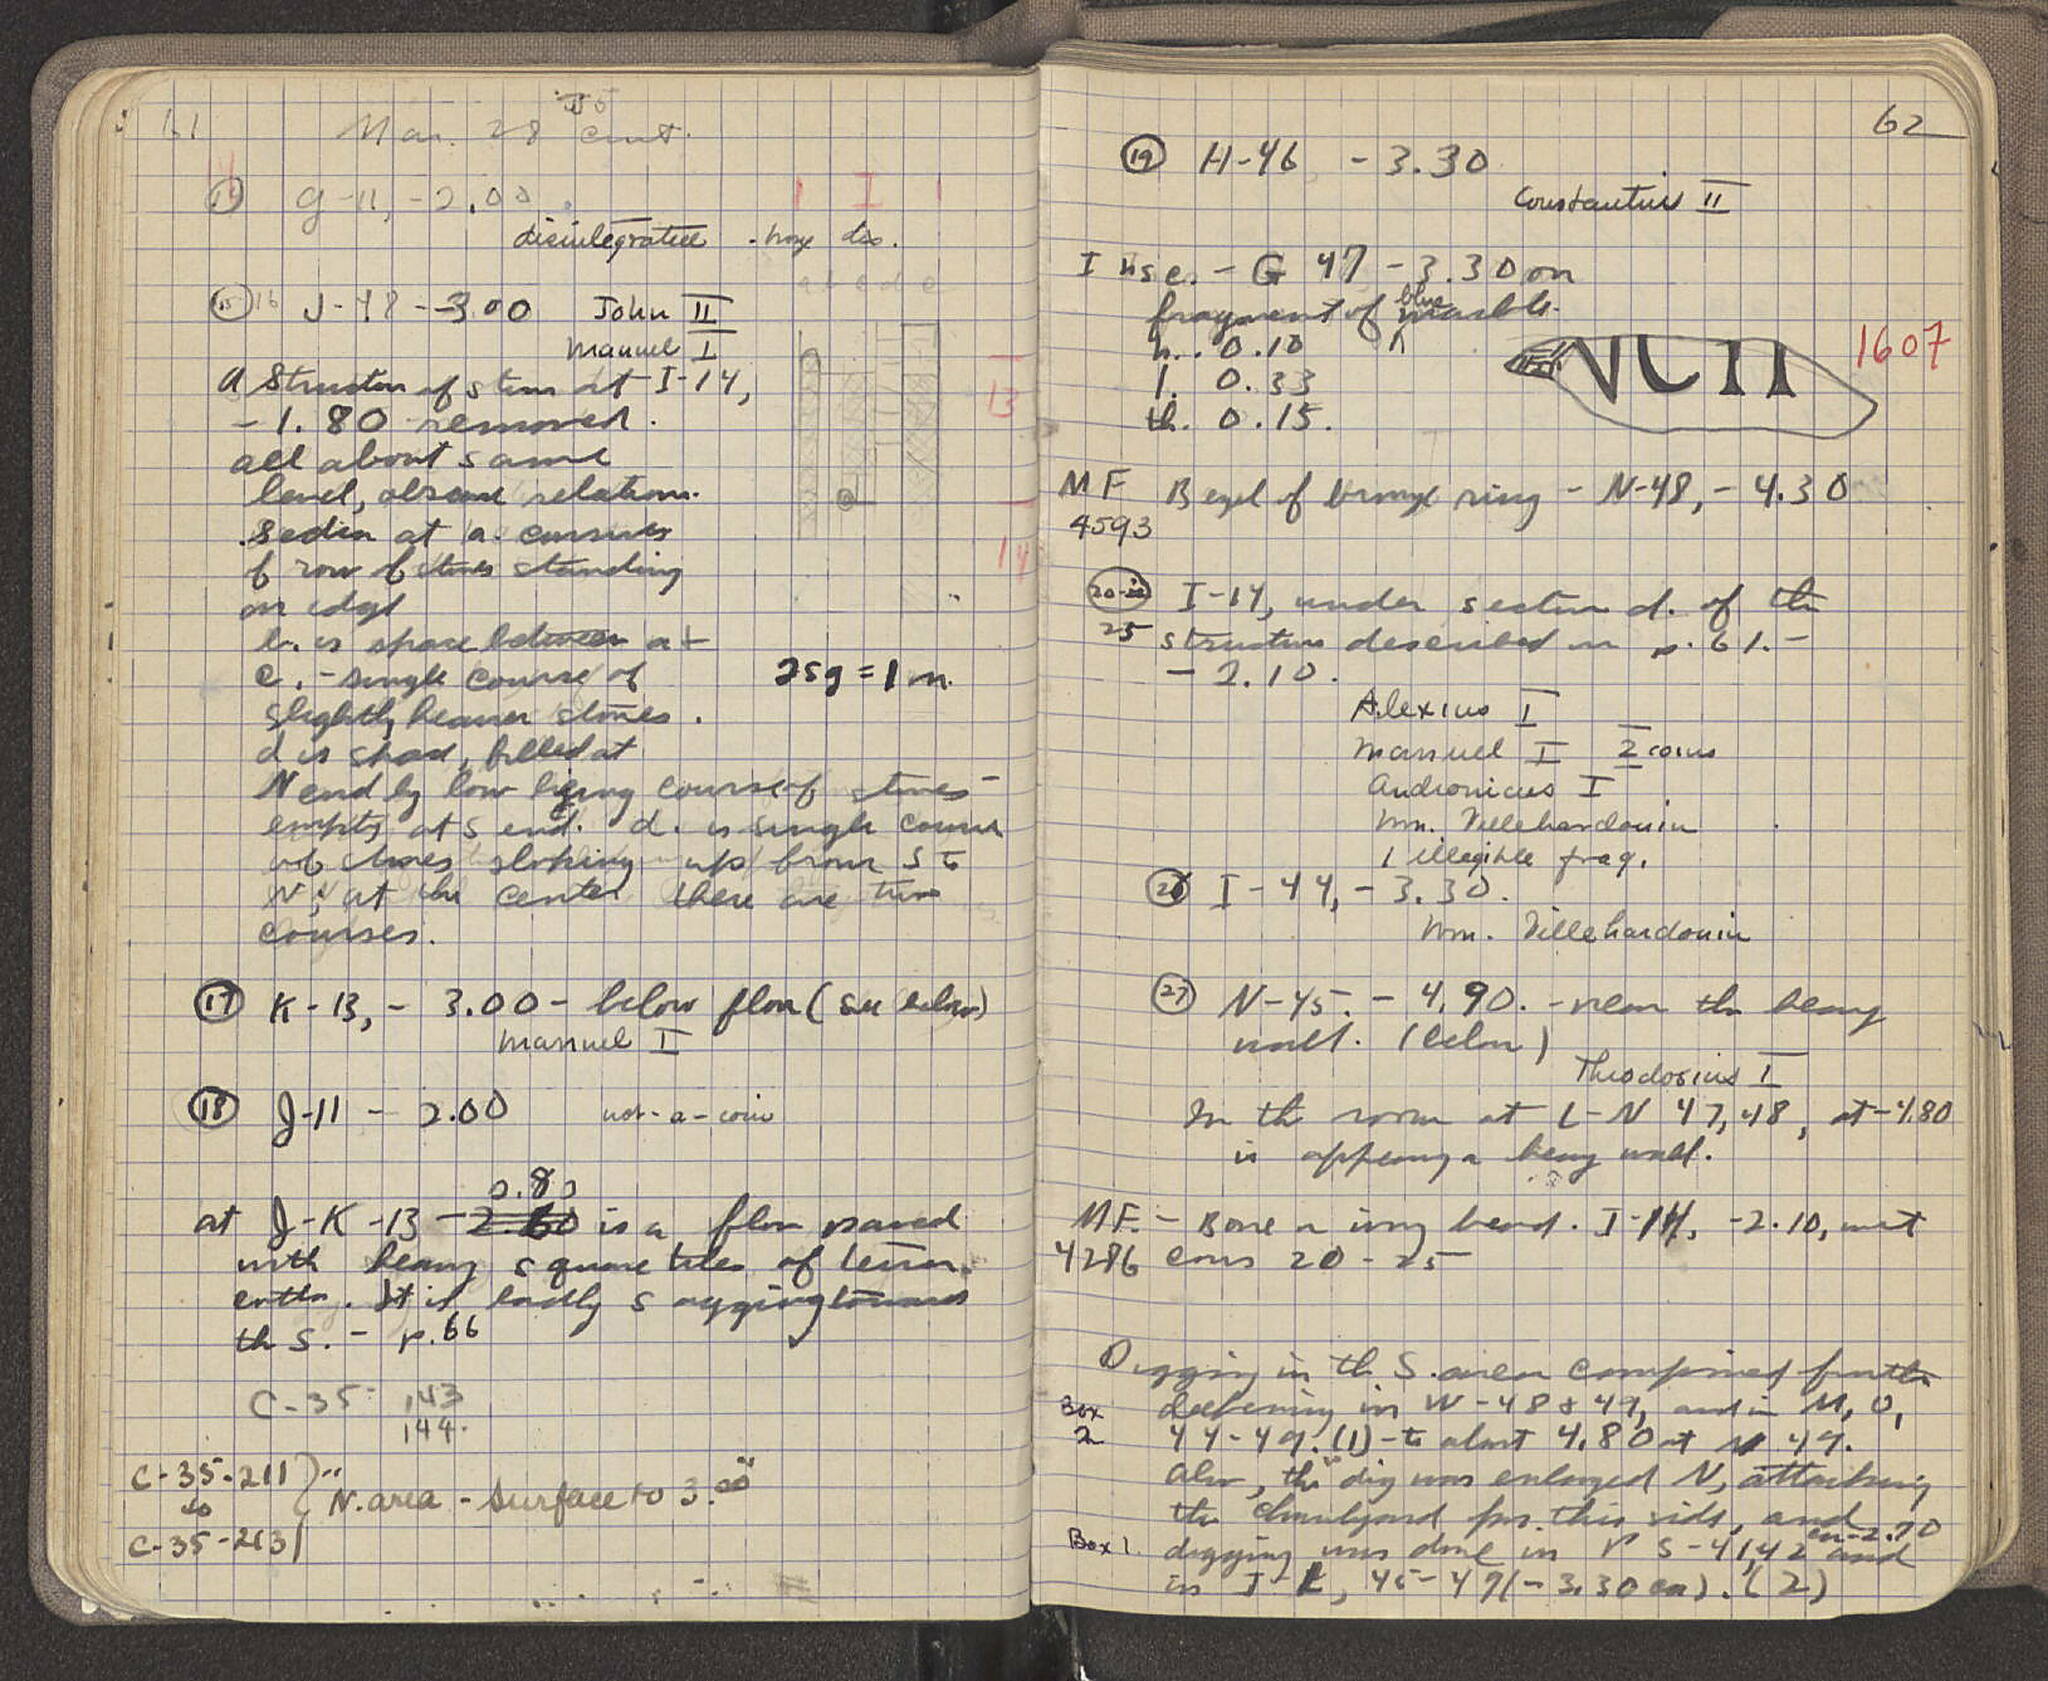 61 Mar. 28 cont.
14 G-11, -2.00
disintegrated
I
a b c d e
15 16 J-48 -3.00 John II
Manuel I
A Structure of stones at I-14,
-1.80 removed.
all about same
level, obscure relation.
Section at a. consists
of row of stones standing
on edge
b. is space between a +
c. - single course of
slightly heavier stones.
25 = 1 m.
13
14
d is space, filled at
N end by low lying course of stones -
empty at S end. d. is single course
of stones sloping up from S to
N; at the center there are two
courses.
17 K-13, - 3.00 - below floor (see below)
Manuel I
18 J-11 - 2.00 not-a-coin
2.80
at J-K-13 -2.60 is a floor paved
with heavy square tiles of terra
cotta. It is badly sagging towards
the S. - p. 66
C-35- 143
144.
C-35-211
to
C-35-213
"N. area - Surface to 3.00"
62
19 H-46 -3.30
Constantius II
Insc. - G 47 -3.30 on
fragment of blue marble.
h. 0.10
l. 0.33
th. 0.15.
1607
MF Bezel of bronze ring - N-48, - 4.30
4593
20-
25
I-14, under section d. of the
structure described on p. 61. -
- 2.10.
Alexius I
Manuel I 2 coins
Andronicus I
Wm. Villehardouin
1 illegible frag.
26 I-44, - 3.30.
Wm. Villehardouin
27 N-45. - 4.90. - near the heavy
wall. (below)
Theodosius I
In the room at L-N 47,48, at -4.80
is appearing a heavy wall.
MF. - Bone or ivory bead. I-14, -2.10, with
4286 coins 20-25
Digging in the S. area comprised further
Box deepening in N-48 + 49, and in M, O,
2 44-49. (1) - to about 4.80 at N 49.
Also, the dig was enlarged N, attacking
the churchyard from this side, and
Box 1. digging was done in P S-41,42 and
in J-L, 45-49 (-3.30 ca). (2)